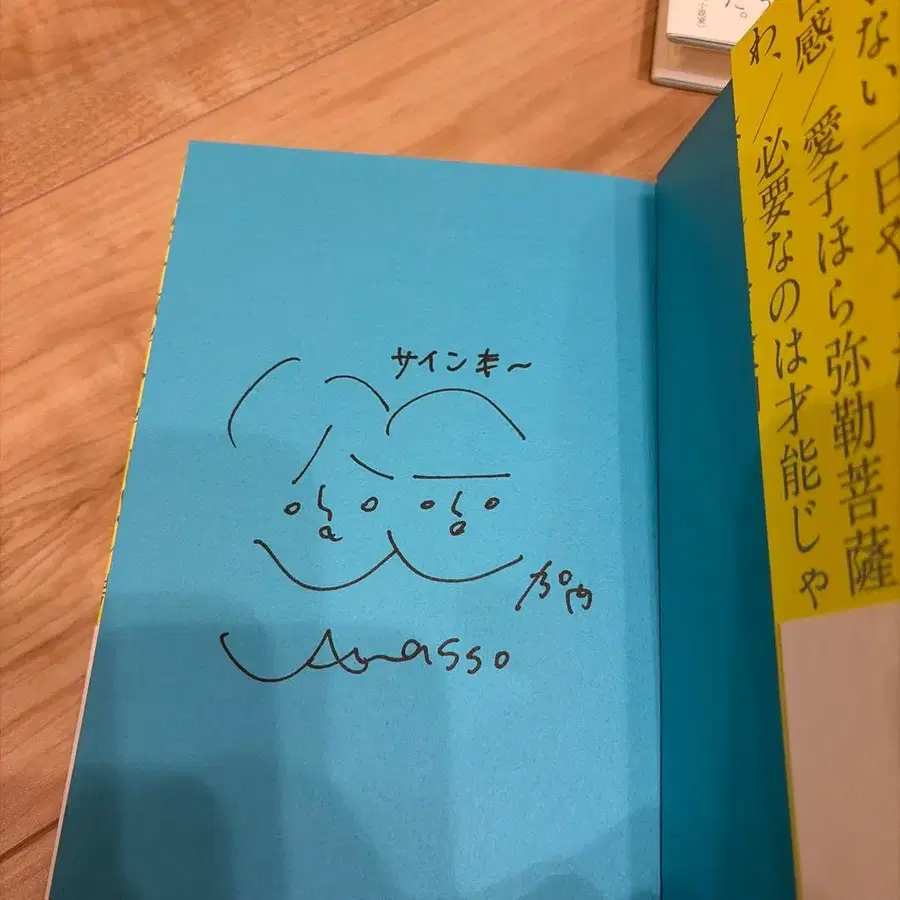 サインキ〜
Amasso
ない／一日や
感／愛子ほら弥勒菩薩
わ、／必要なのは才能じゃ
た。